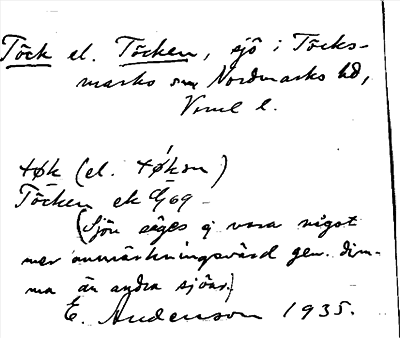 Töck el. Töcken, sjö i Töcks-
marks sn Nordmarks hd,
Vrml l.
tøk (el. tøkən)
Töcken ek G69
(Sjön säges ej vara något
mer anmärkningsvärd gen. dim-
ma än andra sjöar.)
E. Andersson 1935.